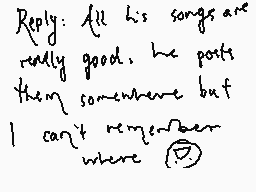 Reply: All his songs are
really good, he posts
them somewhere but
I can't remember
where